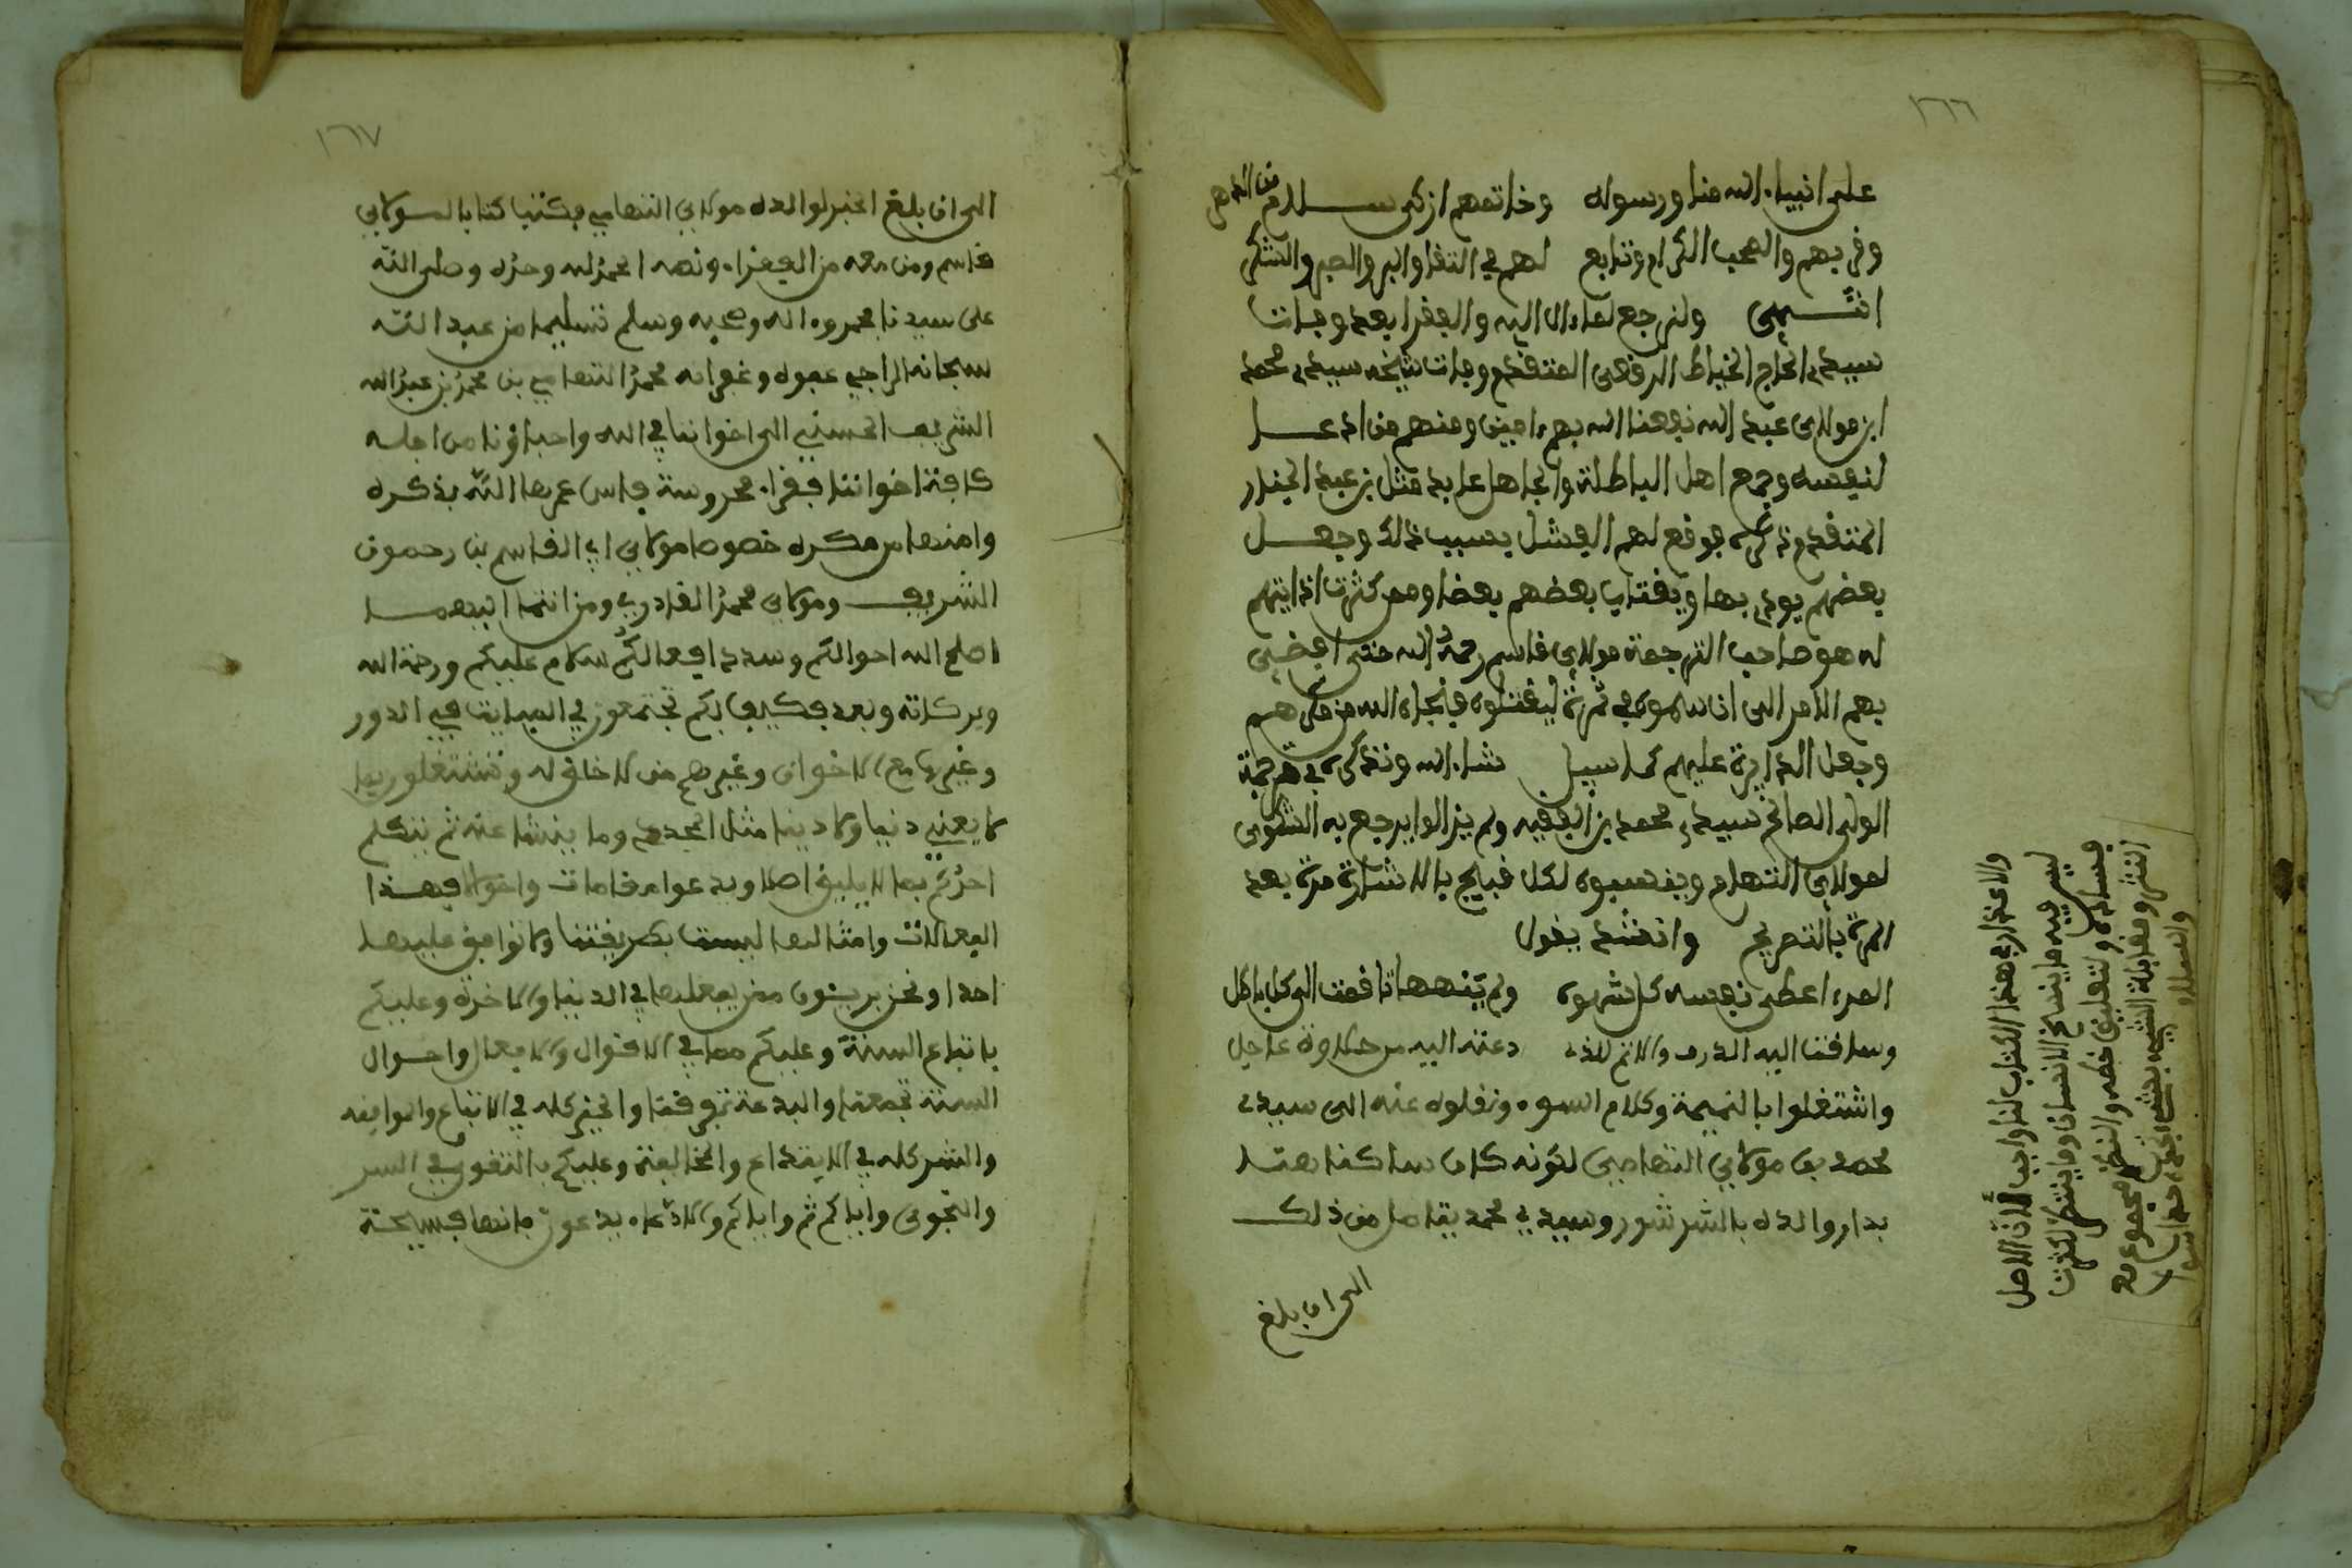 ١٦٦
على انبياء الله منا ورسوله وخاتمهم ازكى ســلام من الدهر
وفربهم والصحب الكرام وتابع لهم في التقا والبر والصبر والشكر
انتــهى ولنرجع لما الله والفقرا بعد وفات
سيدي الحاج الخياط الرقعي المتقدم وفات شيخه سيدي محمد
ابن مولاي عبد الله نفعنا الله بهم ءامين ومنهم من ادعــا
لنفسه وجمع اهل الباطلة والجاهل عابد مثل بن عبد الجبار
المتقدم ذكره فوقع لهم الفشل بسبب ذلك وجعــل
بعضهم يودي بها ويغتاب بعضهم بعضا وممن كثرت اذايتهم
له هو صاحب الترجمة مولاي قاسم رحمه الله حتى افضى
بهم الامر الى ان سموه في ثمرة ليقتلوه فنجاه الله من مكرهــم
وجعل الدايرة عليهم كما سيا شاء الله ونذكره في ترجمة
الولي الصالح سيدي محمد بن الفقيه ولم يزالوا يرجع به الشكوى
لمولاي التهام وينسبوه لكل قبايح بالاشارة مرة بعد
المرة بالتصريح وانشد يقول
المرء اعطى نفسه كل شهوة ولم ينهها تاقت الى كل باطل
وساقت اليه الذم والاثم للذي دعته اليه من حلاوة عاجل
واشتغلوا بالنميمة وكلام السوء ونقلوه عنه الى سيدي
محمد بن مولاي التهامي لكونه كان ساكنا هنــا
بدار والده بالشرشور وسيدي محمد يقاما من ذلك
الى ان بلغ
والاعتذار في هذا الكتاب لنا واجب لان الاصل
ليس فيه ما ينسخ الانسان وما ينتظر لكثرت
فساده ولتغليق خطه والنظر مجموع مع
النثر ومقابلة الشيء بشيء اخر
١٦٧
الى ان بلغ الخبر لوالده مولاي التهامي فكتب كتابا لمولاي
قاسم ومن معه من الفقراء ونصه الحمد لله وحده وصلى الله
على سيدنا محمد وءاله وصحبه وسلم تسليما من عبد الله
سبحانه الراجي عفوه وغفرانه محمد التهامي بن محمد بن عبد الله
الشريف الحسني الى اخواننا في الله واحباؤنا من اجله
كافة اخواننا فقراء محروسة فاس عمرها الله بذكره
وامنها من مكره خصوصا مولاي ابي القاسم بن رحمون
الشريف ومولاي محمد القادري ومن انتما اليهمــا
اصلح الله احوالكم وسدد افعالكم سلام عليكم ورحمة الله
وبركاته وبعد فكيف بكم تجتمعون في المبايت في الدور
وغيرها مع الاخوان وغيرهم من لا خلق له وتشتغلون بما
لا يعني دنيا ولا دينا مثل وما ينشا عنه ثم يتكلم
احدكم بما لا يليق اصلا ويدعوا مقامات واحوالا فهــذا
الفعالات وامثالها ليست بطريقتنا ولا نوافق عليهــا
احدا ونحن بريئون ممن يفعلها في الدنيا والاخرة وعليكم
باتباع السنة وعليكم بها في الاقوال والافعال واحــوال
السنة تجمعنا والبدعة تفرقنا والخير كله في الاتباع والموافقه
والشر كله في الابتداع والمخالفة وعليكم بالتقوى في السر
والنجوى واياكم ثم واياكم والادعاء يدعون فانها قبيحة